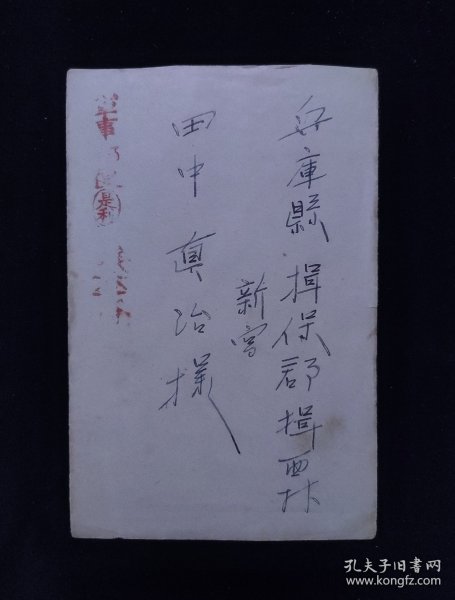 兵庫縣揖保郡揖西村
新宮
田中真治様
軍事郵便
孔夫子旧书网
www.kongfz.com